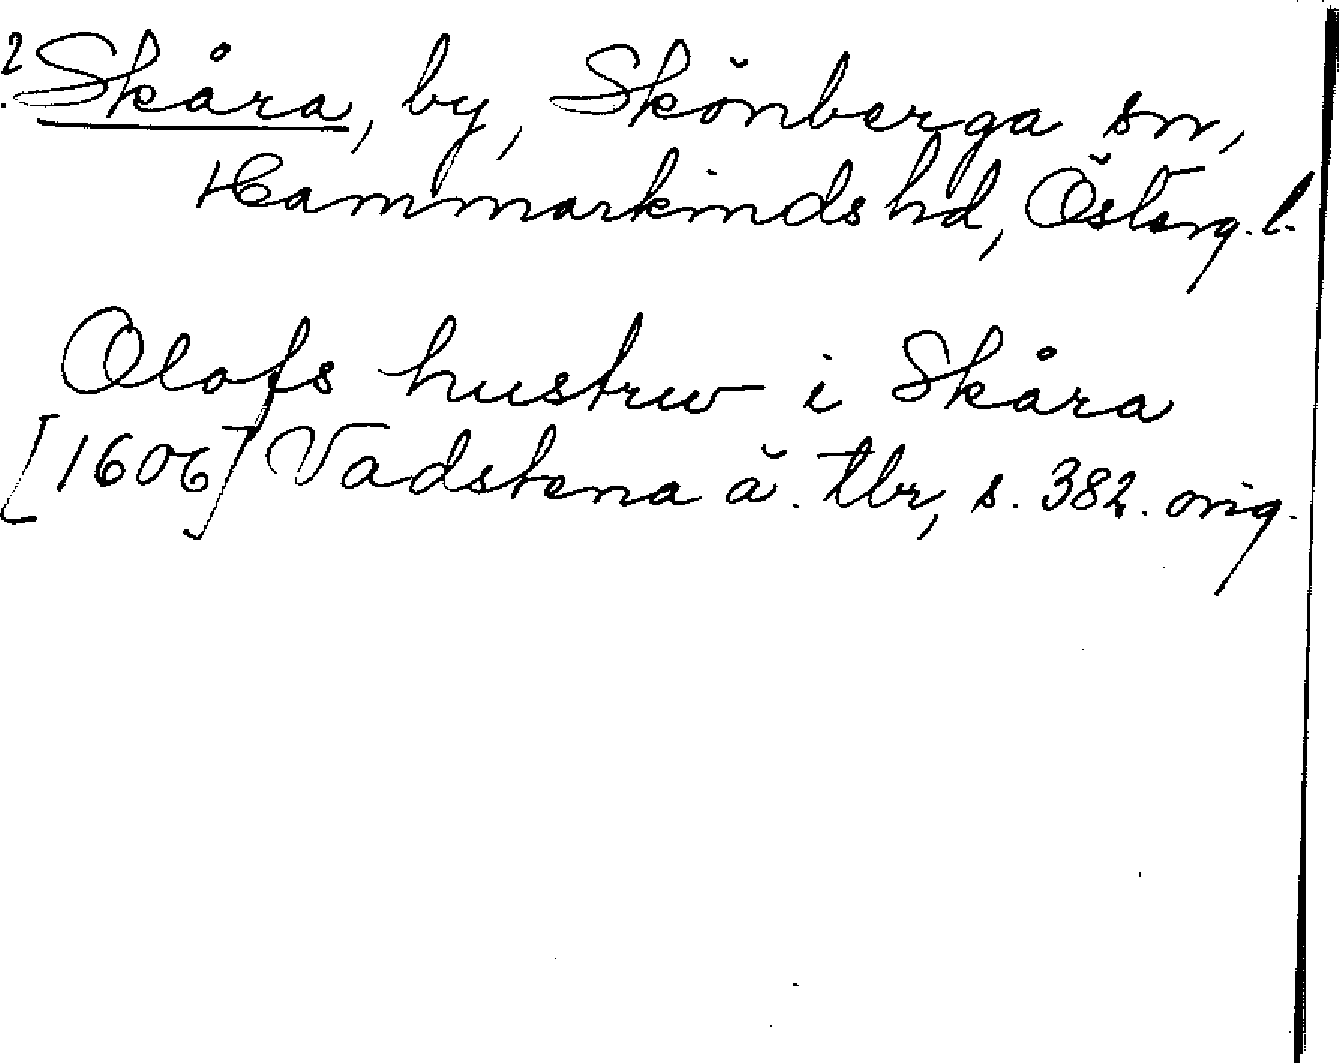 2. Skåra, by, Skönberga sn,
Hammarkinds hd, Österg. l.
Olofs hustrw i Skåra
[1606] Vadstena ä. tbr, s. 382. orig.